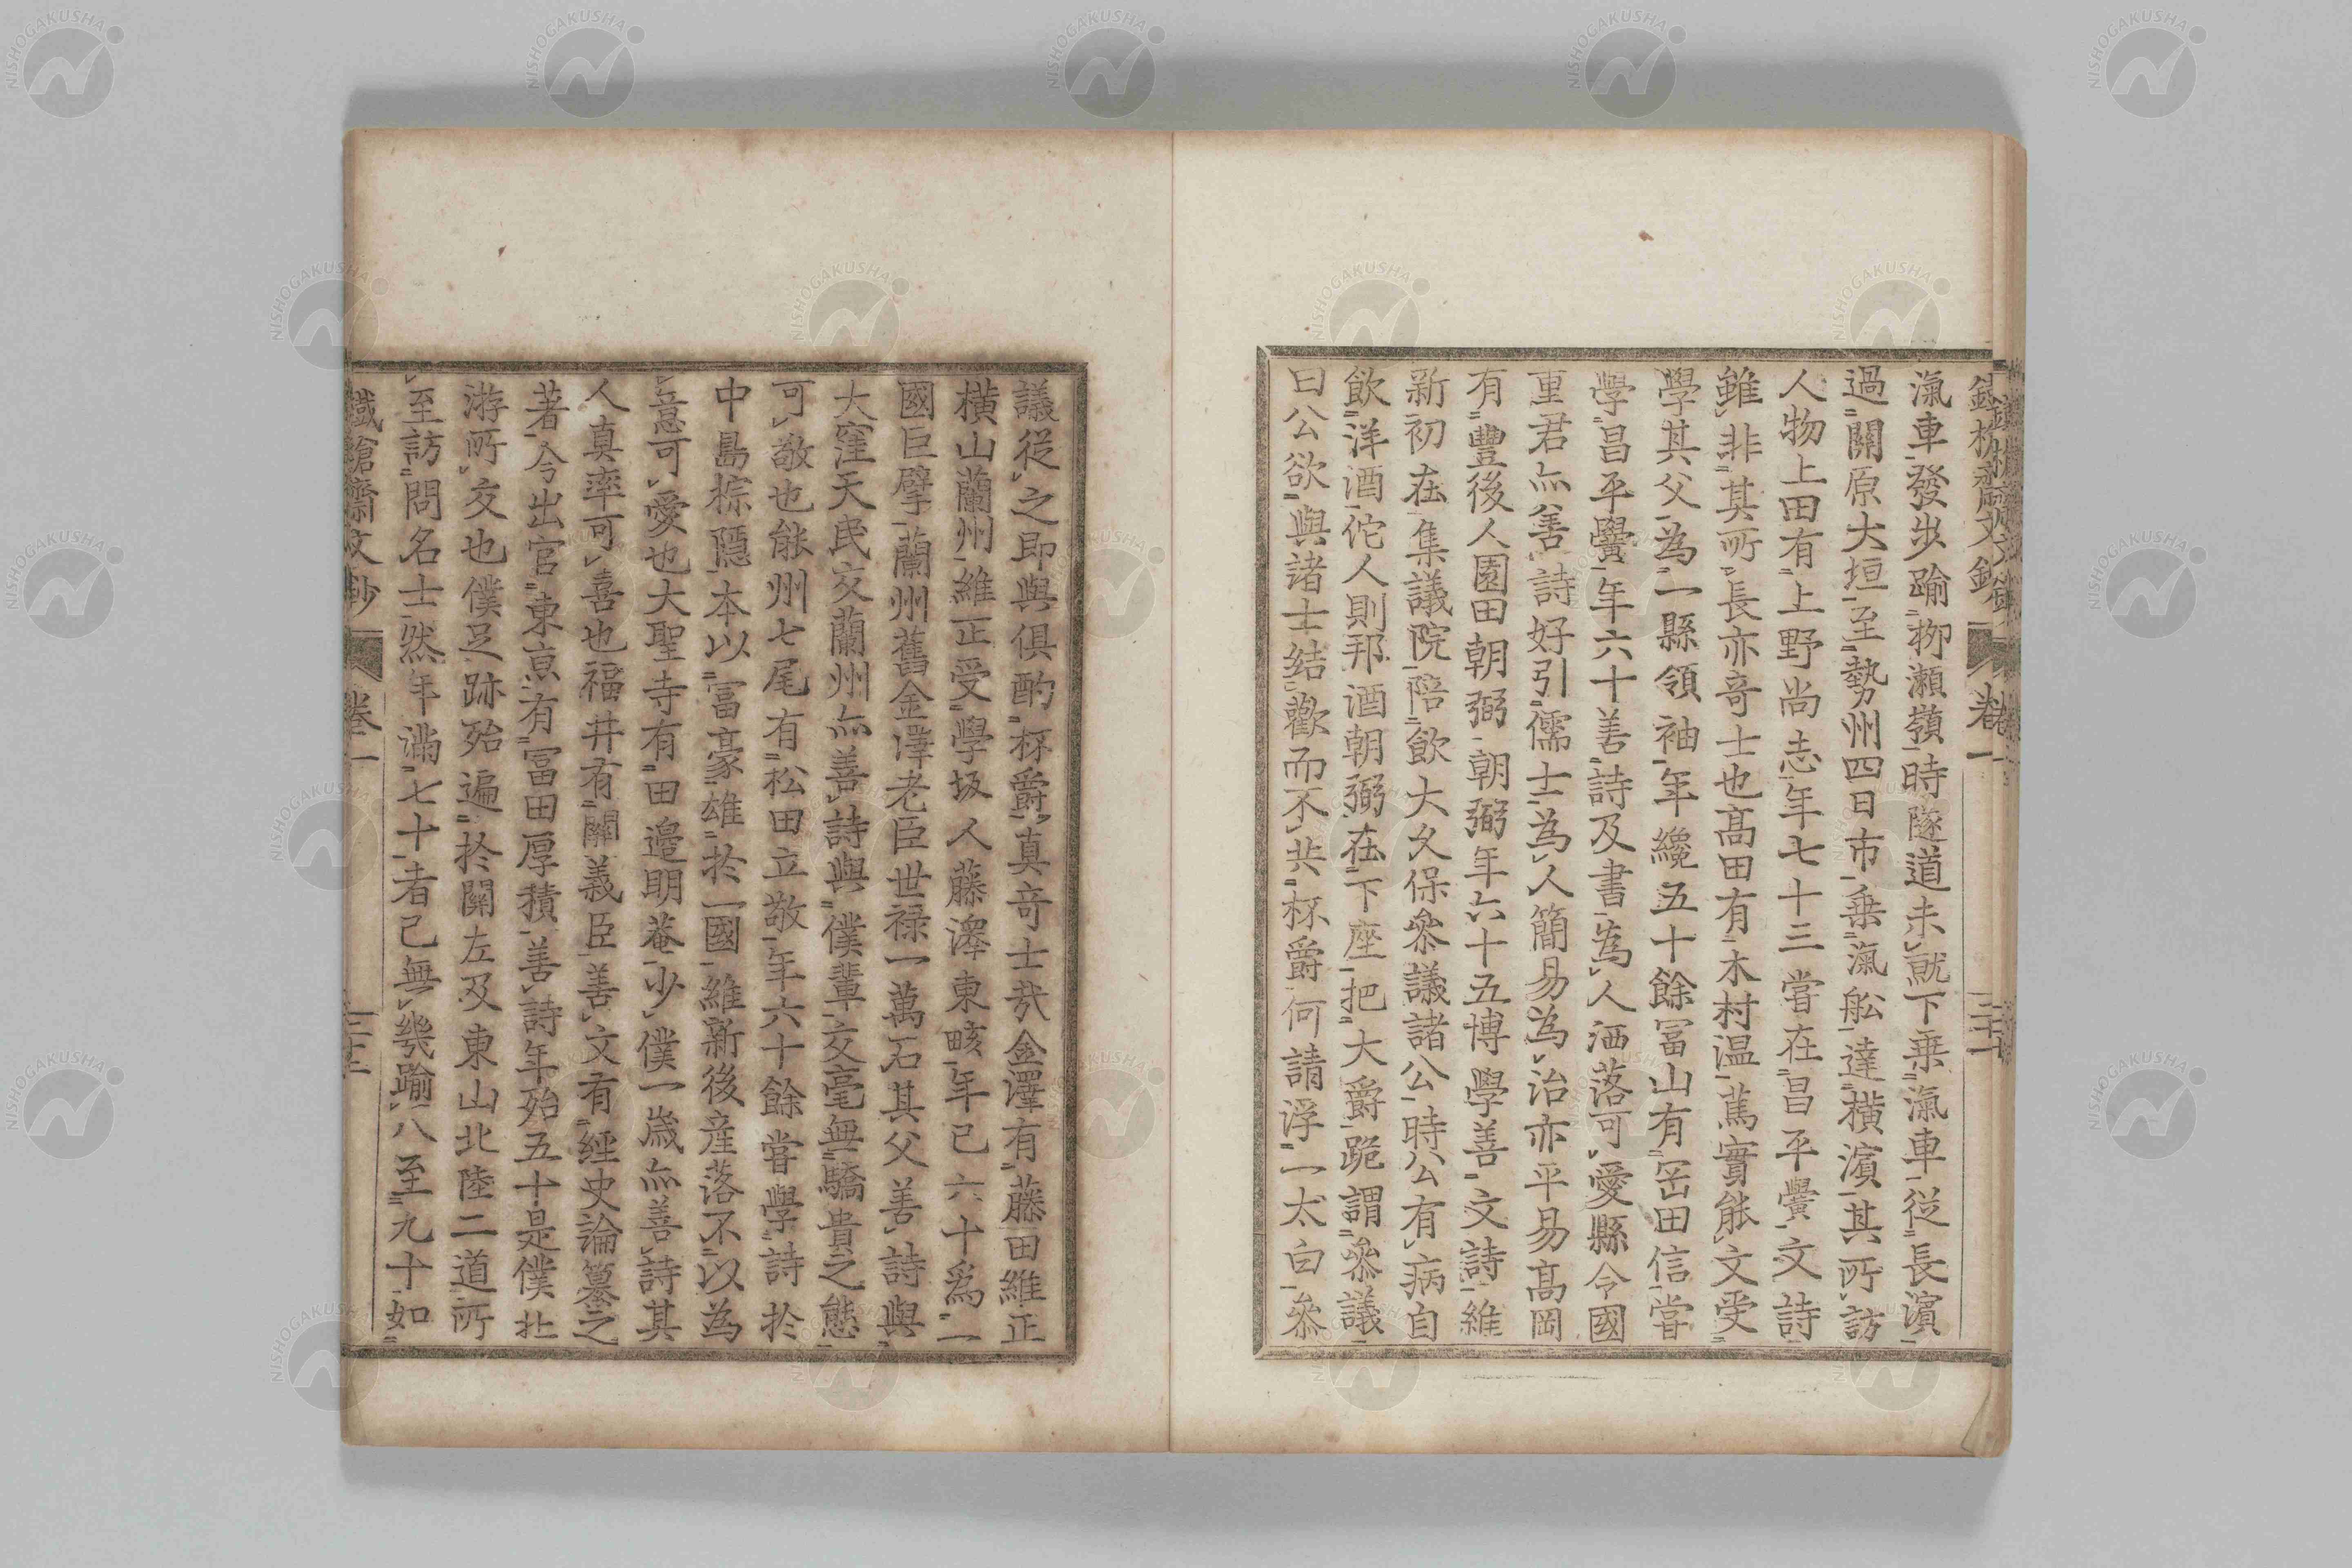 滊車發出踰柳瀬嶺時隧道未就下乗滊車從長濱
過關原大垣至勢州四日市乗滊舩達横濱其所訪
人物上田有上野尚志年七十三嘗在昌平黌文詩
雖非其所長亦奇士也髙田有木村温篤實能文受
學其父為一縣領袖年纔五十餘冨山有岡田信嘗
學昌平黌年六十善詩及書為人洒落可愛縣令國
重君亦善詩好引儒士為人簡易為治亦平易髙岡
有豐後人園田朝弼朝弼年六十五博學善文詩維
新初在集議院陪飲大久保叅議諸公時公有病自
飲洋酒佗人則邦酒朝弼在下座把大爵跪謂叅議
曰公欲與諸士結歡而不共杯爵何請浮一太白叅
議從之即與俱酌杯爵真奇士哉金澤有藤田維正
横山蘭州維正受學坂人藤澤東畡年已六十為一
國巨擘蘭州舊金澤老臣世禄一萬石其父善詩與
大窪天民交蘭州亦善詩與僕輩交毫無驕貴之態
可敬也能州七尾有松田立敬年六十餘嘗學詩於
中島棕隱本以冨豪雄於一國維新後産落不以為
意可愛也大聖寺有田邉明菴少僕一歳亦善詩其
人真率可喜也福井有關義臣善文有經史論纂之
著今出官東亰有冨田厚積善詩年殆五十是僕北
游所交也僕足跡殆遍於關左及東山北陸二道所
至訪問名士然年滿七十者已無幾踰八至九十如
鐵槍齋文鈔 卷一